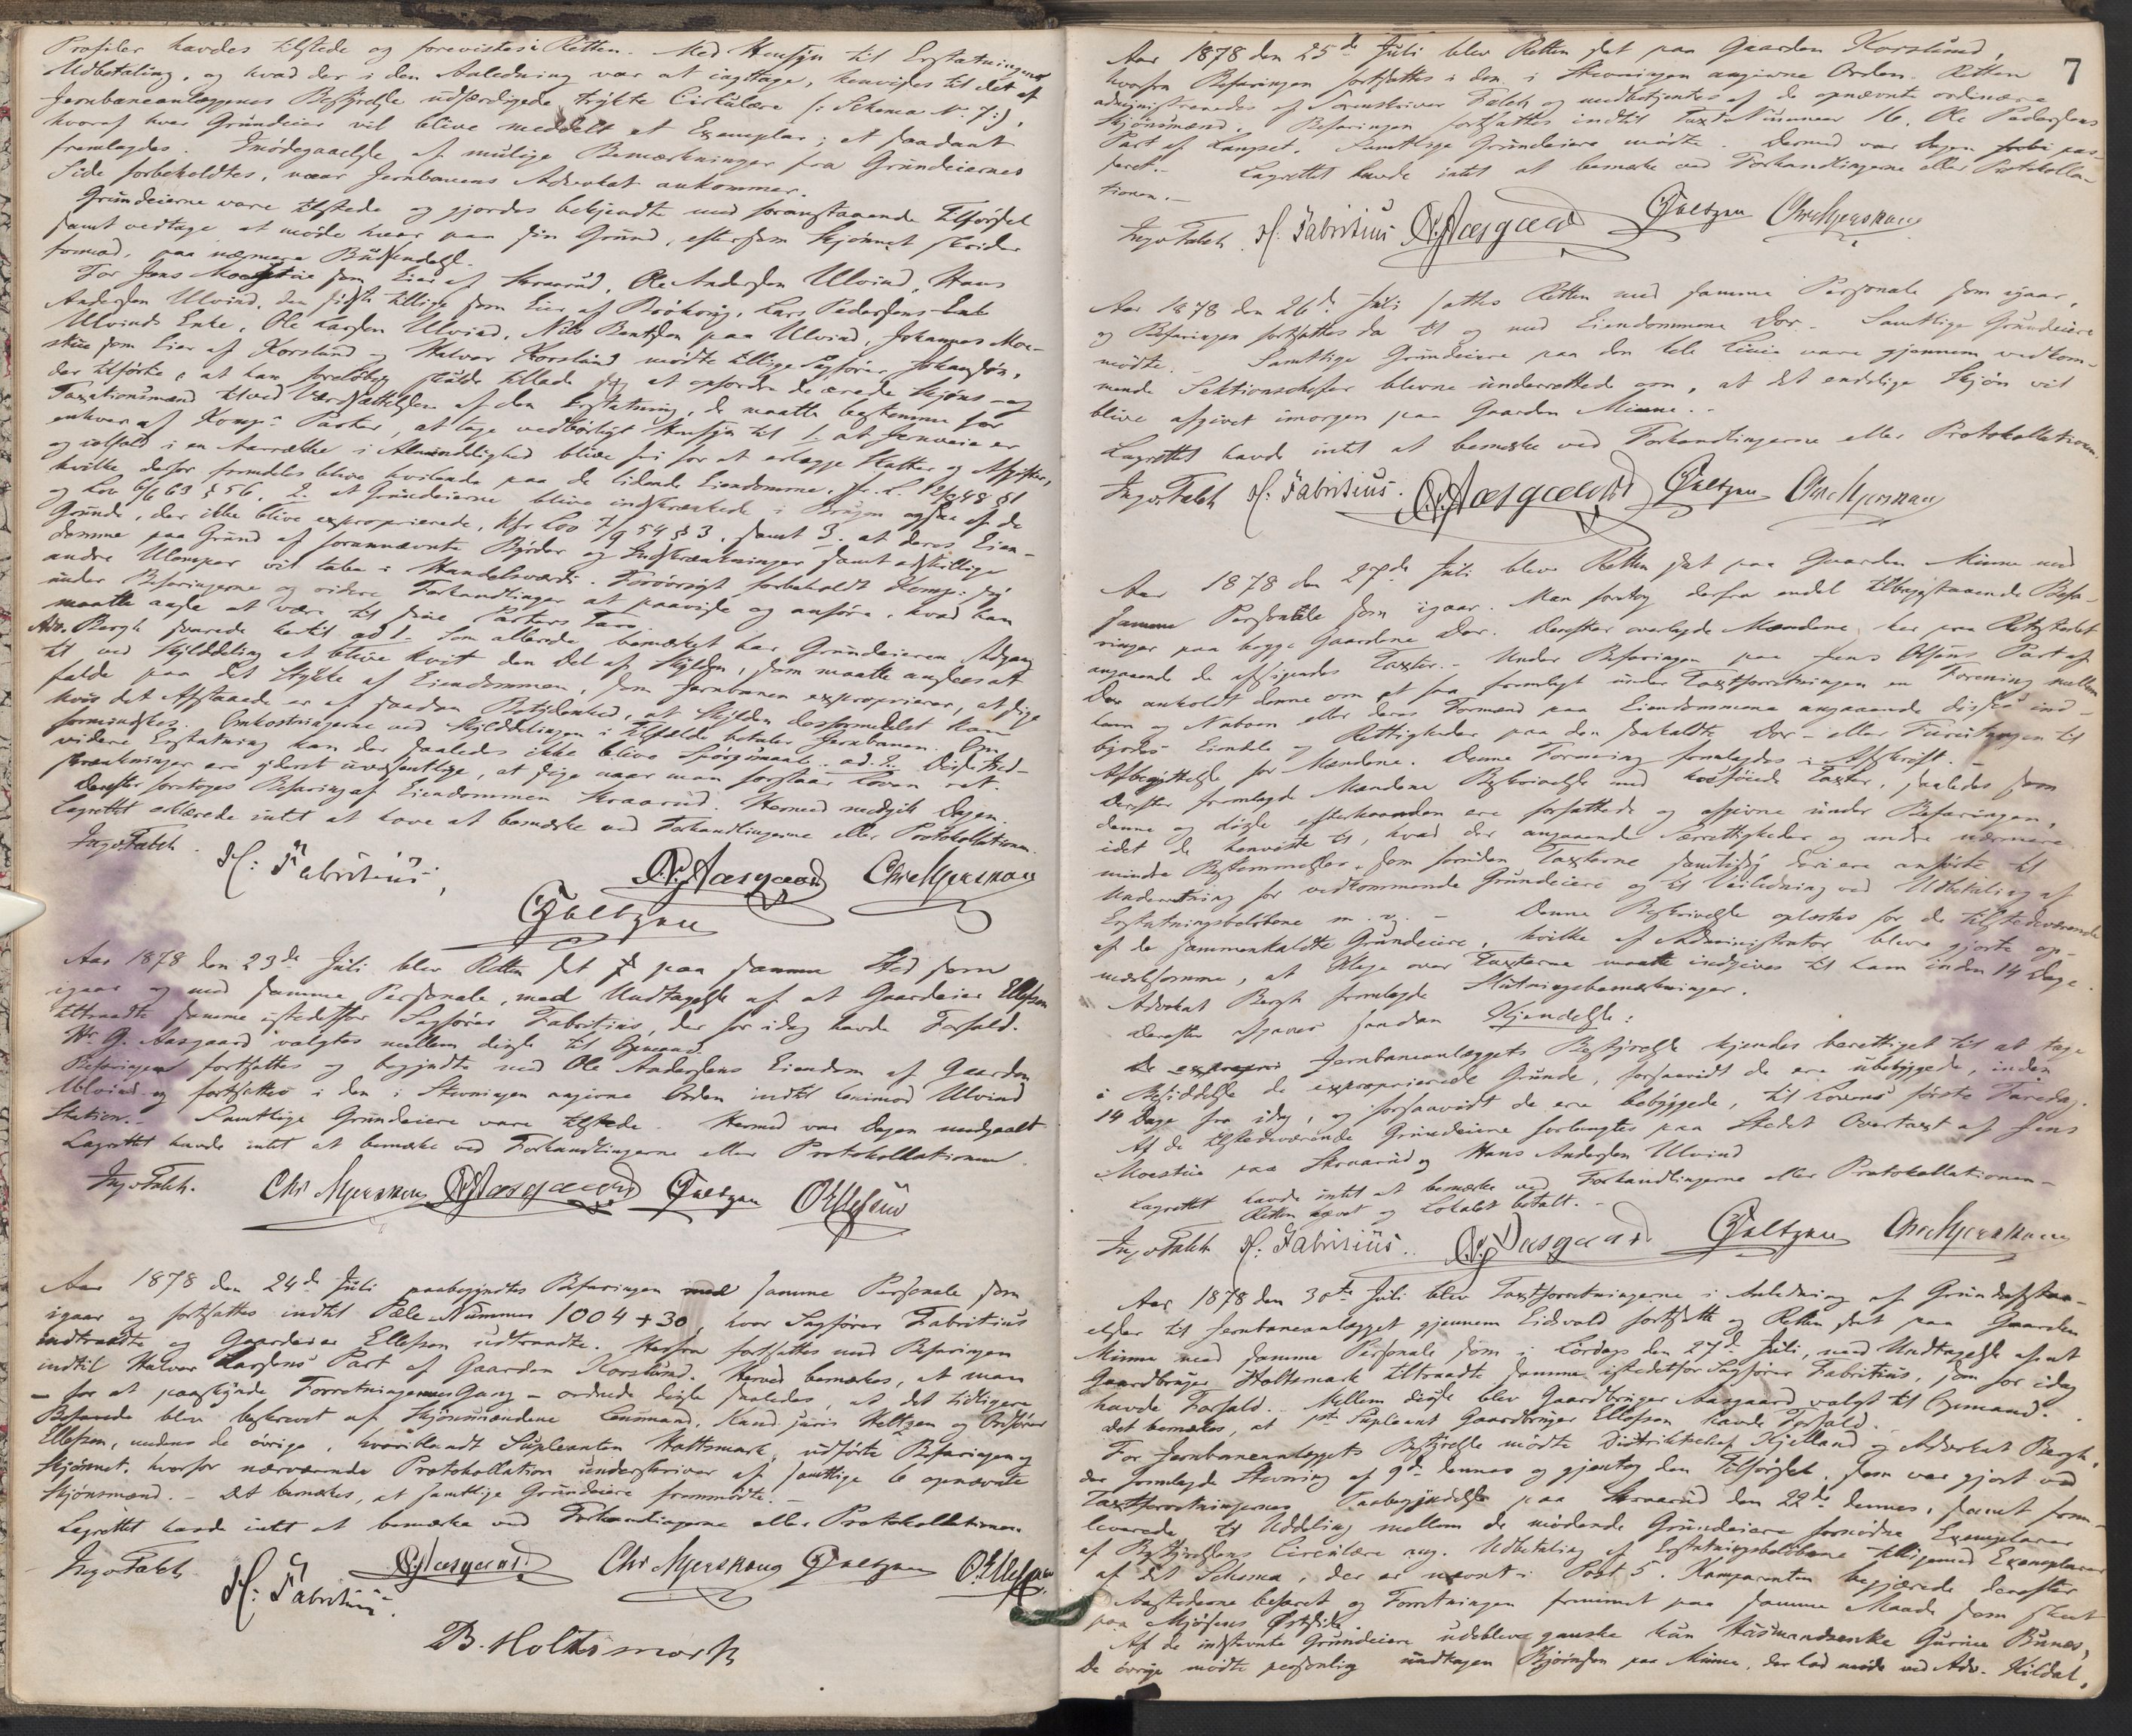 Profiler havdes tilstede og forevistes i Retten. Med Hensyn til Erstatningens
Udbetaling, og hvad der i den Anledning var at iagttage, henvistes til det af
Jernbaneanlæggenes Bestyrelse udfærdigede trykte Cirkulære (: Schema No 7:),
hvoraf hver Grundeier vil blive meddelt et Exemplar; et saadant
fremlagdes. Imødegaaelse af mulige Bemærkninger fra Grundeiernes
Side forbeholdtes, naar Jernbanens Advokat ankommer.
Grundeierne vare tilstede og gjordes bekjendte med foranstaaende Tilførsel
samt vedtage at møde hver paa sin Grund, eftersom Skjønnet skrider
fremad, paa nærmere Budsendelse.
For Jens Moestue som Eier af Skraarud, Ole Andersen Ulvind, Hans
Andersen Ulvind, den sidste tillige som Eier af Lars Pedersens Enke
Ulvinds Enke, Ole Larsen Ulvind, Nils Bentsen paa Ulvind, Johannes Moe-
stue som Eier af Korslund og Halvor Korslund mødte tillige Sagfører Johansen,
der tilførte, at han foreløbig skulde tillade sig at opfordre de ærede Skjøns- og
Taxationsmænd til ved Værdsættelsen af den Erstatning, de maatte bestemme for
enhver af Komp: Parter, at tage vedbørligt Hensyn til 1. at Jernveie er
og ialfald i en Aarrække i Almindelighed blive fri for at erlægge Skatter og Afgifter,
hvilke derfor fremdeles blive hvilende paa de lidende Eiendomme, jfr. L. 12/8 48 § 1
og Lov 6/6 63 § 56. 2. at Grundeierne blive indskrænkede i Brugen ogsaa af de
Grunde, der ikke blive exproprierede, kfr Lov 7/9 54 § 3, samt 3. at deres Eien-
domme paa Grund af forannævnte Byrder og Indskrænkninger samt adskillige
andre Ulemper vil tabe i Handelsværdi. Forøvrigt forbeholdt Komp: sig
under Befaringerne og videre Forhandlinger at paavise og anføre, hvad han
maatte agte at være til sine Parters Tarv.
Adv. Bergh svarede hertil ad 1. Som allerede bemærket har Grundeieren Adgang
til ved Skylddeling at blive kvit den Del af Skylden, som maatte ansees at
falde paa det Stykke af Eiendommen, som Jernbanen exproprierer, at sige
hvis det Afstaaede er af saadan Betydenhed, at Skylden derformedelst kan
formindskes. Omkostningerne ved Skylddelingen i Tilfælde betaler Jernbanen. Om
videre Erstatning kan der saaledes ikke blive Spørgsmaal. ad. 2. Disse Ind-
skrænkninger ere yderst uvæsentlige, at sige naar man forstaar Loven ret.
Derefter foretoges Befaring af Eiendommen Skraarud. Hermed medgik Dagen.
Lagrettet erklærede intet at have at bemærke ved Forhandlingerne eller Protokollationen.
Ingv Falch. H: Fabritius, N. Aasgaard Chr Myrskaug
Geltzau
Aar 1878 den 23de Juli blev Retten sat paa samme Sted som
igaar og med samme Personale, med Undtagelse af at Gaardeier Ellefsen
tiltraadte samme istedetfor Sagfører Fabritius, der for idag havde Forfald.
Hr G. Aasgaard valgtes mellem disse til Opmand.
Befaringen fortsattes og begyndte med Ole Andersens Eiendom af Gaarden
Ulvind og fortsattes i den i Stevningen angivne Orden indtil henimod Ulvind
Station. Samtlige Grundeiere vare tilstede. Hermed var Dagen medgaaet.
Lagrettet havde intet at bemærke ved Forhandlingerne eller Protokollationen.
Ingv Falch. Chr Myrskaug N. Aasgaard Geltzau O Ellefsen
Aar 1878 den 24de Juli paabegyndtes Befaringen med samme Personale som
igaar og fortsattes indtil Pæle Nummer 1004 + 30, hvor Sagfører Fabritius
indtraadte og Gaardeier Ellefsen udtraadte. Herfra fortsattes med Befaringen
indtil Halvor Larsens Part af Gaarden Korslund. Herved bemærkes, at man
– for at paaskynde Forretningernes Gang – ordnede disse saaledes, at det tidligere
Befarede blev beskrevet af Skjønsmændene Lensmand, Kand. juris Heltzen og Ordfører
Ellefsen, medens de øvrige, hvoriblandt Supleanten Holtsmark, udførte Befaringen og
Skjønnet, hvorfor nærværende Protokollation underskrives af samtlige 6 opnævnte
Skjønsmænd. – Det bemærkes, at samtlige Grundeiere fremmødte. –
Lagrettet havde intet at bemærke ved Forhandlingerne eller Protokollationen.
Ingv Falch H: Fabritius. N. Aasgaard. Chr Myrskaug Geltzau O. Ellefsen
B. Holtsmark
7
Aar 1878 den 25de Juli blev Retten sat paa Gaarden Korslund,
hvorfra Befaringen fortsattes i den i Stevningen angivne Orden. Retten
administreredes af Sorenskriver Falch og medbetjentes af de opnævnte ordinære
Skjønsmænd. Befaringen fortsattes indtil Taxt Nummer 16, Ole Pedersens
Part af Langset. Samtlige Grundeiere mødte. Dermed var Dagen forbi pas-
seret. – Lagrettet havde intet at bemærke ved Forhandlingerne eller Protokolla-
tionen. –
Ingv Falch. H. Fabritius N. Aasgaard Geltzau Chr Myrskaug
Aar 1878 den 26de Juli sattes Retten med samme Personale som igaar,
og Befaringen fortsattes da til og med Eiendommene Dor. – Samtlige Grundeiere
mødte. – Samtlige Grundeiere paa den hele Linie vare gjennem vedkom-
mende Sektionschefer blevne underrettede om, at det endelige Skjøn vil
blive afgivet imorgen paa Gaarden Minne. –
Lagrettet havde intet at bemærke ved Forhandlingerne eller Protokollationen.
Ingv Falch H. Fabritius. N. Aasgaard Geltzau Chr Myrskaug
Aar 1878 den 27de Juli blev Retten sat paa Gaarden Minne med
samme Personale som igaar. Man foretog derfra endel tilbagestaaende Befa-
ringer paa begge Gaardene Dor. Derefter overlagde Mændene her paa Retsstedet
angaaende de afsigendes Taxter. – Under Befaringen paa Jens Olsens Part af
Dor anholdt denne om at faa fremlagt under Taxtforretningen en Forening mellem
ham og Naboen eller deres Formænd paa Eiendommene angaaende disses ind-
byrdes Eiendele og Rettigheder paa den saakaldte Dor- eller til
Afbenyttelse for Mændene. Denne Forening fremlagdes i Afskrift. –
Derefter fremlagde Mændene Beskrivelse med hosføiede Taxter, saaledes som
denne og disse efterhaanden ere forfattede og afgivne under Befaringen,
idet de henviste til, hvad der angaaende Særrettigheder og andre nærmere
mindre Bestemmelser, som foruden Taxterne samtidig deri ere anførte til
Underretning for vedkommende Grundeiere og til Veiledning ved Udbetaling af
Erstatningsbeløbene m. v. – Denne Beskrivelse oplæstes for de tilstedeværende
af de sammenkaldte Grundeiere, hvilke af Administrator bleve gjorte op-
mærksomme, at Klage over Taxterne maatte indgives til ham inden 14 Dage.
Advokat Bergh fremlagde Slutningsbemærkninger.
Derefter afgaves saadan Kjendelse:
De expropri Jernbaneanlæggets Bestyrelse kjendes berettiget til at tage
i Besiddelse de exproprierede Grunde, forsaavidt de ere ubebyggede, inden
14 Dage fra idag, og forsaavidt de ere bebyggede, til Lovens første Faredag.
Af de tilstedeværende Grundeiere forlangtes paa Stedet Overtaxt af Jens
Moestue paa Skraarud og Hans Andersen Ulvind
Lagrettet havde intet at bemærke ved Forhandlingerne eller Protokollationen –
Retten hævet og Lokalet betalt. –
Ingv Falch H. Fabritius. N. Aasgaard Geltzau Chr Myrskaug
Aar 1878 den 30te Juli blev Taxtforretningerne i Anledning af Grundafstaa-
elser til Jernbaneanlægget gjennem Eidsvold fortsatte og Retten sat paa Gaarden
Minne med samme Personale som i Lørdags den 27de Juli, med Undtagelse af at
Gaardbruger Holtsmark tiltraadte samme istedetfor Sagfører Fabritius, som for idag
havde Forfald. Mellem disse blev Gaardbruger Aasgaard valgt til Opmand.
Det bemærkes, at 1ste Supleant Gaardbruger Ellefsen havde Forfald.
For Jernbaneanlæggets Bestyrelse mødte Distriktschef Kjelland og Advokat Bergh,
der fremlagde Stevning af 9de dennes og gjentog den Tilførsel, som var gjort ved
Taxtforretningernes Paabegyndelse paa Skraarud den 22de dennes, samt frem-
leverede til Uddeling mellem de mødende Grundeiere fornødne Exemplarer
af Bestyrelsens Circulære ang. Udbetaling af Erstatningsbeløbene tilligemed Exemplarer
af det Schema, der er nævnt i Post 5. Komparenten begjærede derefter
Aastederne befaret og Forretningen fremmet paa samme Maade som skeet
paa Mjøsens Østside.
Af de indstevnte Grundeiere udebleve ganske kun Husmandsenke Gurine Bunes,
De øvrige mødte personlig undtagen Bjørnsen paa Minne, der lod møde ved Adv. Kildal,